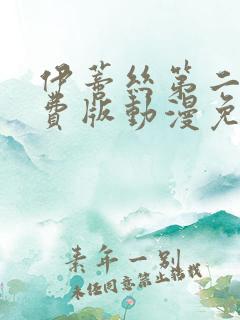 伊蒂丝第二
费版动漫免
素年一别
未经同意禁止搭载